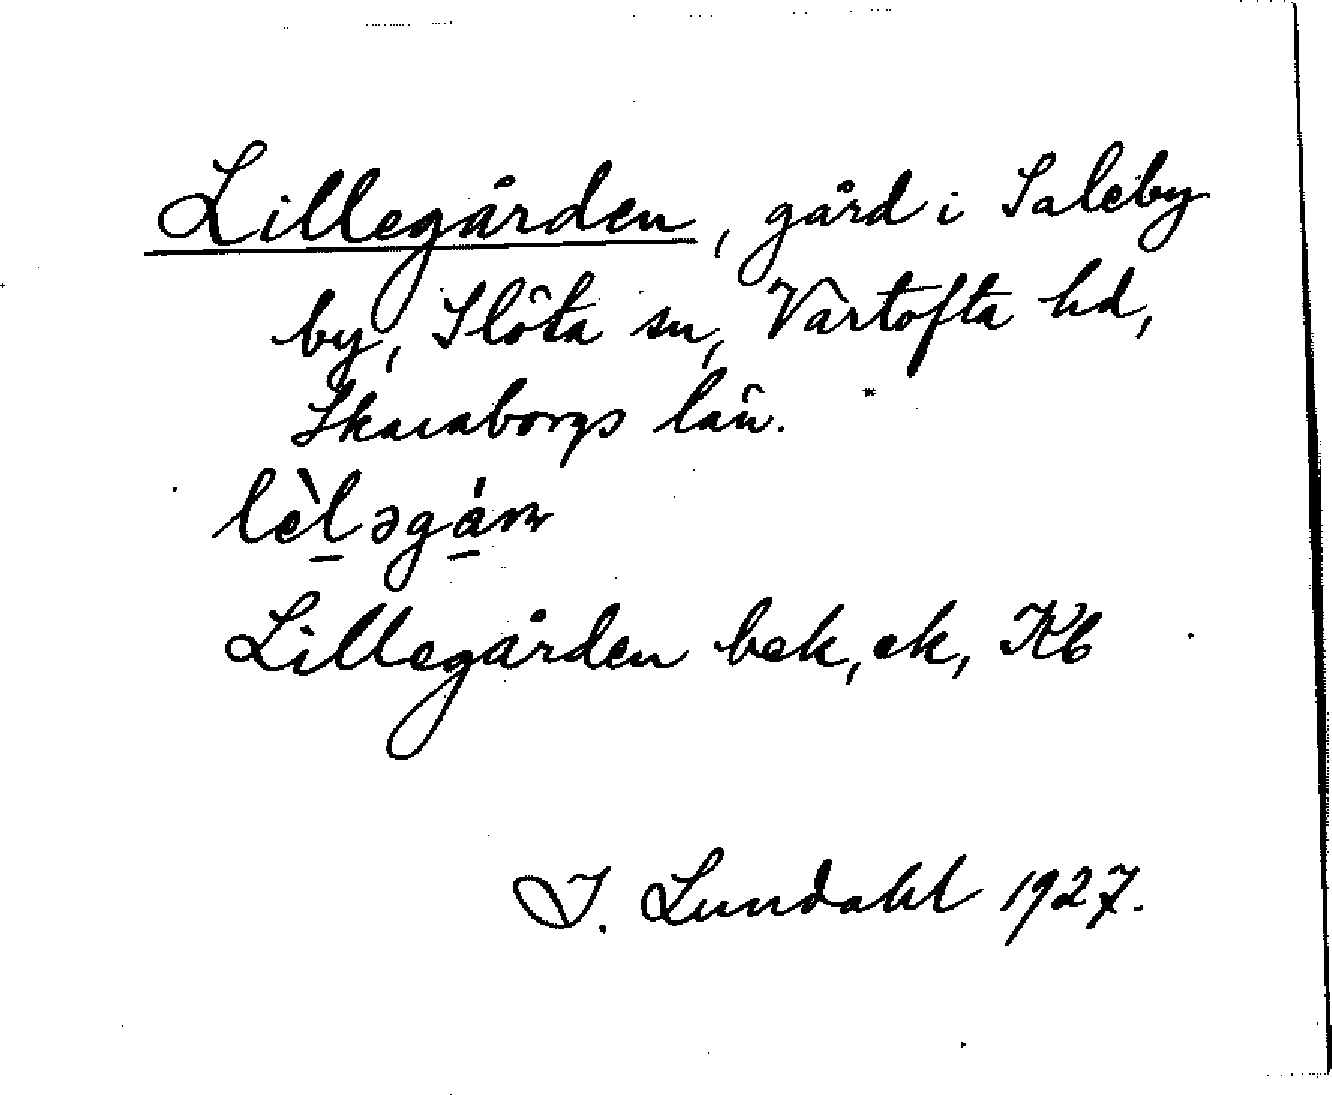 Lillegården, gård i Saleby
by, Slöta sn, Vartofta hd,
Skaraborgs län.
Lillegården bek, ek, Kb
I. Lundahl 1927.